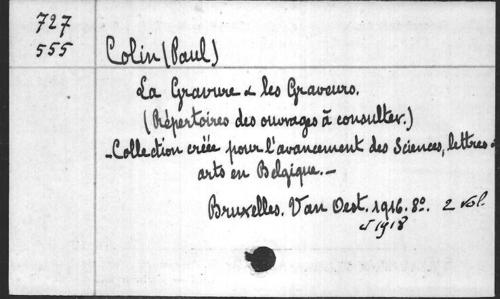 727
555
Colin (Paul)
La Gravure & les Graveurs.
(Répertoires des ouvrages à consulter.)
-Collection créée pour l'avancement des Sciences, lettres &
arts en Belgique.-
Bruxelles. Van Oest. 1916. 8º. 2 vol.
et 1918